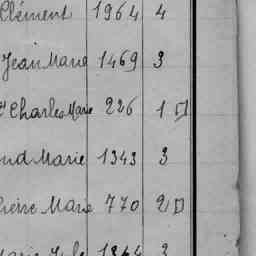 Clément 1964 4
Jean Marie 1469 3
Charles Marie 226 1
Marie 1343 3
Pierre Marie 770 2
1364 3